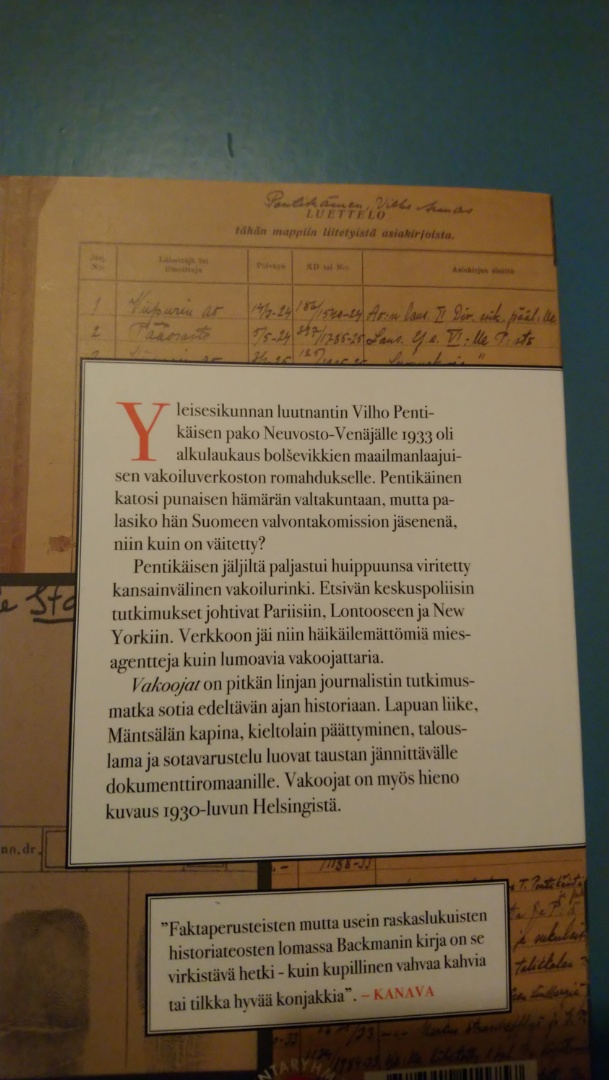 Pentikäinen, Vilho
LUETTELO
tähän mappiin liitetyistä asiakirjoista.
Päiväys KD tai N:o Asiakirjan sisältö
1 Viipurin ao
2 Pääosasto 5/5-24
Yleisesikunnan luutnantin Vilho Penti-
käisen pako Neuvosto-Venäjälle 1933 oli
alkulaukaus bolševikkien maailmanlaajui-
sen vakoiluverkoston romahdukselle. Pentikäinen
katosi punaisen hämärän valtakuntaan, mutta pa-
lasiko hän Suomeen valvontakomission jäsenenä,
niin kuin on väitetty?
Pentikäisen jäljiltä paljastui huippuunsa viritetty
kansainvälinen vakoilurinki. Etsivän keskuspoliisin
tutkimukset johtivat Pariisiin, Lontooseen ja New
Yorkiin. Verkkoon jäi niin häikäilemättömiä mies-
agentteja kuin lumoavia vakoojattaria.
Vakoojat on pitkän linjan journalistin tutkimus-
matka sotia edeltävän ajan historiaan. Lapuan liike,
Mäntsälän kapina, kieltolain päättyminen, talous-
lama ja sotavarustelu luovat taustan jännittävälle
dokumenttiromaanille. Vakoojat on myös hieno
kuvaus 1930-luvun Helsingistä.
nn.dr.
"Faktaperusteisten mutta usein raskaslukuisten
historiateosten lomassa Backmanin kirja on se
virkistävä hetki - kuin kupillinen vahvaa kahvia
tai tilkka hyvää konjakkia". – KANAVA